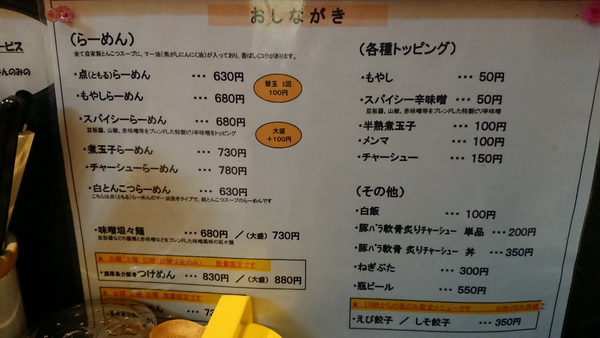 おしながき
ービス
さんのみの
(らーめん)
全て自家製とんこつスープに、マー油(焦がしにんにく油)が入っており、香ばしくコクがあります。
・点(ともる)らーめん ・・・ 630円
・もやしらーめん ・・・ 680円
替玉 1回
100円
・スパイシーらーめん ・・・ 680円
豆板醤、山椒、赤味噌等をブレンドした特製ピリ辛味噌をトッピング
大盛
+100円
・煮玉子らーめん ・・・ 730円
・チャーシューらーめん ・・・ 780円
・白とんこつらーめん ・・・ 630円
こちらは点(ともる)らーめんのマー油抜きタイプで、純とんこつスープのらーめんです
・味噌坦々麺 ・・・ 680円 /(大盛) 730円
豆板醤などの醤類と赤味噌などをブレンドした味噌風味の坦々麺
・濃厚魚介豚骨つけめん ・・・ 830円 /(大盛) 880円
(各種トッピング)
・もやし ・・・ 50円
・スパイシー辛味噌 ・・・ 50円
豆板醤、山椒、赤味噌等をブレンドした特製ピリ辛味噌
・半熟煮玉子 ・・・ 100円
・メンマ ・・・ 100円
・チャーシュー ・・・ 150円
(その他)
・白飯 ・・・ 100円
・豚バラ軟骨 炙りチャーシュー 単品 ・・・200円
・豚バラ軟骨 炙りチャーシュー 丼 ・・・ 350円
・ねぎぶた ・・・ 300円
・瓶ビール ・・・ 550円
・えび餃子 / しそ餃子 ・・・ 350円